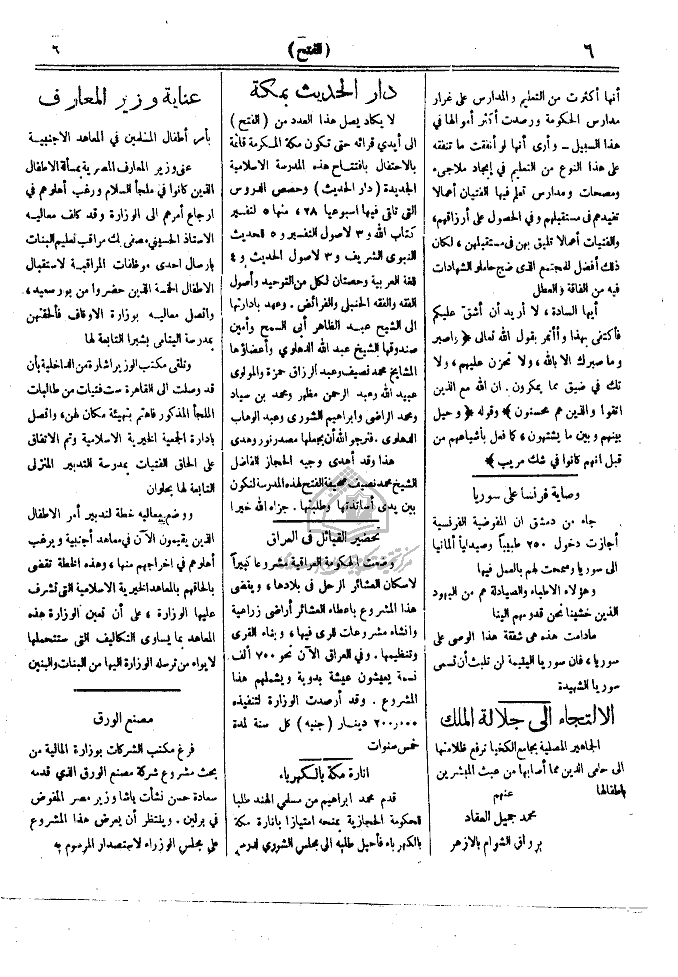 ٦
(الفتح)
٦
أنها أكثرت من التعليم والمدارس على غرار
مدارس الحكومة ورصدت أكثر أموالها في
هذا السبيل ــ وأرى أنها لو أنفقت ما تنفقه
على هذا النوع من التعليم في إيجاد ملاجىء
ومصحات ومدارس تعلم فيها الفتيان أعمالا
تفيدهم في مستقبلهم وفي الحصول على أرزاقهم،
والفتيات أعمالا تليق بهن في مستقبلهن، لكان
ذلك أفضل للمجتمع الذى ضج حاملو الشهادات
فيه من الفاقة والعطل
أيها السادة، لا أريد أن أشق عليكم
فأكتفى بهذا وأأتمر بقول الله تعالى ﴿ واصبر
وما صبرك الا بالله، ولا تحزن عليهم، ولا
تك في ضيق مما يمكرون. ان الله مع الذين
اتقوا والذين هم محسنون ﴾ وقوله ﴿ وحيل
بينهم وبين ما يشتهون، كما فعل بأشياعهم من
قبل انهم كانوا في شك مريب ﴾
وصاية فرنسا على سوريا
جاء من دمشق ان المفوضية الفرنسية
أجازت دخول ٢٥٠ طبيباً وصيدلياً ألمانيا
الى سوريا وسمحت لهم بالعمل فيها
وهؤلاء الاطباء والصيادلة هم من اليهود
الذين خشينا نحن قدومهم الينا
مادامت هذه هى شفقة هذا الوصى على
سوريا، فان سوريا اليتيمة لن تلبث أن تسمى
سوريا الشهيدة
الالتجاء الى جلالة الملك
الجماهير المصلية بجامع الكخيا ترفع ظلامتها
الى حامى الدين مما أصابها من عبث المبشرين
باطفالها
عنهم
محمد جميل العقاد
برواق الشوام بالازهر
دار الحديث بمكة
لا يكاد يصل هذا العدد من (الفتح)
الى أيدي قرائه حتى تكون مكة المكرمة قائمة
بالاحتفال بافتتاح هذه المدرسة الاسلامية
الجديدة (دار الحديث) وحصص الدروس
التى تلقى فيها اسبوعيا ٢٨، منها ٥ لتفسير
كتاب الله و٣ لاصول التفسير و٥ للحديث
النبوى الشريف و٣ لاصول الحديث و٤
للغة العربية وحصتان لكل من التوحيد وأصول
الفقه والفقه الحنبلى والفرائض. وعهد بادارتها
الى الشيخ عبد الظاهر أبى السمح وأمين
صندوقها الشيخ عبد الله الدهلوي وأعضاؤها
المشايخ محمد نصيف وعبد الرزاق حمزة والمولوى
عبيد الله وعبد الرحمن مظهر ومحمد بن سياد
ومحمد الراضى وابراهيم الشورى وعبد الوهاب
الدهلوى. فنرجو الله أن يجعلها مصدر نور وهدى
هذا وقد أهدى وجيه الحجاز الفاضل
الشيخ محمد نصيف صحيفة الفتح لهذه المدرسة لتكون
بين يدى أساتذتها وطلبتها. جزاه الله خيرا
تحضير القبائل فى العراق
وضعت الحكومة العراقية مشروعا كبيراً
لاسكان العشائر الرحل في بلادها، ويقضى
هذا المشروع باعطاء العشائر أراضى زراعية
وانشاء مشروعات للرى فيها، وبناء القرى
وتنظيمها. وفي العراق الآن نحو ٧٥٠ ألف
نسمة يعيشون عيشة بدوية ويشملهم هذا
المشروع. وقد أرصدت الوزارة لتنفيذه
٢٠٠٫٠٠٠ دينار (جنيه) كل سنة لمدة
خمس سنوات
انارة مكة بالكهرباء
قدم محمد ابراهيم من مسلمي الهند طلبا
للحكومة الحجازية بمنحه امتيازا بانارة مكة
بالكهرباء فأحيل طلبه الى مجلس الشورى لدرسه
عناية وزير المعارف
بأمر أطفال المسلمين في المعاهد الاجنبية
عنى وزير المعارف المصرية بمسألة الاطفال
الذين كانوا في ملجأ السلام ورغب أهلوهم في
ارجاع أمرهم الى الوزارة وقد كلف معاليه
الاستاذ الحسينى مصفى بك مراقب تعليم البنات
بارسال احدى موظفات المراقبة لاستقبال
الاطفال الخمسة الذين حضروا من بور سعيد،
واتصل معاليه بوزارة الاوقاف فألحقتهن
بمدرسة اليتامى بشبرا التابعة لها
وتلقى مكتب الوزير اشارة من الداخلية بأن
قد وصلت الى القاهرة ست فتيات من طالبات
الملجأ المذكور فاهتم بتهيئة مكان لهن، واتصل
بادارة الجمعية الخيرية الاسلامية وتم الاتفاق
على الحاق الفتيات بمدرسة التدبير المنزلى
التابعة لها بحلوان
ووضع معاليه خطة لتدبير أمر الاطفال
الذين يقيمون الآن في معاهد أجنبية ويرغب
أهلوهم في اخراجهم منها، وهذه الخطة تقضى
بالحاقهم بالمعاهد الخيرية الاسلامية التى تشرف
عليها الوزارة، على أن تعين الوزارة هذه
المعاهد بما يساوى التكاليف التى ستتحملها
لايواء من ترسله الوزارة اليها من البنات والبنين
مصنع الورق
فرغ مكتب الشركات بوزارة المالية من
بحث مشروع شركة مصنع الورق الذى قدمه
سعادة حسن نشأت باشا وزير مصر المفوض
في برلين. وينتظر أن يعرض هذا المشروع
على مجلس الوزراء لاستصدار المرسوم به